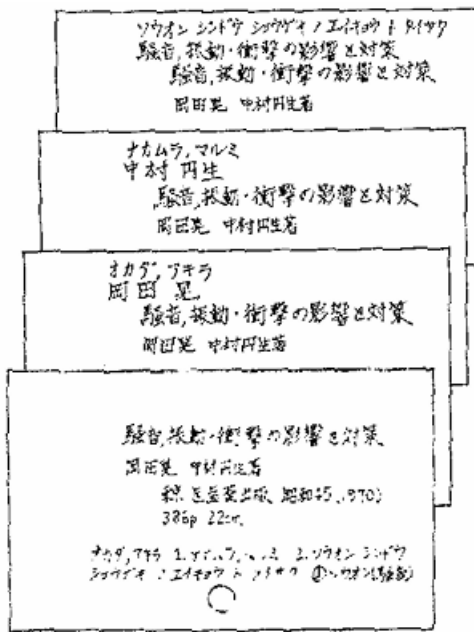 ソウオン シンドウ ショウゲキ ノ エイキョウ ト タイサク
騒音,振動・衝撃の影響と対策
騒音,振動・衝撃の影響と対策
岡田晃 中村円生著
ナカムラ,マルミ
中村 円生
騒音,振動・衝撃の影響と対策
岡田晃 中村円生著
オカダ,アキラ
岡田 晃
騒音,振動・衝撃の影響と対策
岡田晃 中村円生著
騒音,振動・衝撃の影響と対策
岡田晃 中村円生著
出版 昭和45
386p 22cm
アキラ 1. 2. ソウオン シンドウ
ショウゲキ ノ エイキョウ ト ソウオン